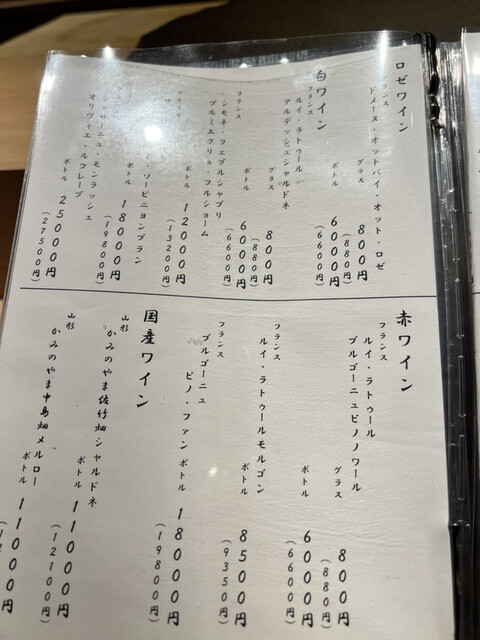 ロゼワイン
フランス
ドメーヌ・オットバイ・オット・ロゼ
グラス 800円
(880円)
ボトル 6000円
(6600円)
白ワイン
フランス
ルイ・ラトゥール
アルデッシュシャルドネ
グラス 800円
(880円)
ボトル 6000円
(6600円)
フランス
シモネ・フェブルシャブリ
プルミエクリュ・フルショーム
ボトル 12000円
(13200円)
・ソービニヨンブラン
ボトル 18000円
(19800円)
モンラッシェ
オリヴィエ・ルフレーブ
ボトル 25000円
(27500円)
赤ワイン
フランス
ルイ・ラトゥール
ブルゴーニュピノノワール
グラス 800円
(880円)
ボトル 6000円
(6600円)
フランス
ルイ・ラトゥールモルゴン
ボトル 8500円
(9350円)
フランス
ブルゴーニュ
ピノ・ファン
ボトル 18000円
(19800円)
国産ワイン
山形
かみのやま佐竹畑シャルドネ
ボトル 11000円
(12100円)
山形
かみのやま中島畑メルロー
ボトル 11000円